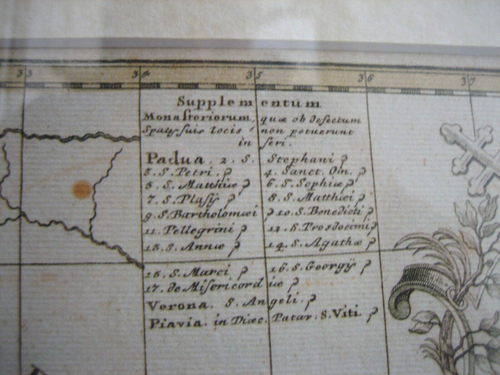 33 34 35 36 37
Supplementum
Monasteriorum, quæ ob defectum
Spatÿ suis locis non potuerunt
in seri.
Padua. 2. S. Stephani
3. S. Petri. 4. Sanct. Om.
5. S. Matthiæ 6. S. Sophiæ
7. S. Blasÿ 8. S. Matthæi
9. S. Bartholomæi 10. S. Benedicti
11. Pellegrini 12. S. Prosdocimi
13. S. Annæ 14. S. Agathæ
15. S. Marci 16. S. Georgÿ
17. de Misericordiæ
Verona. S. Angeli.
Piavia. in Diœc. Patav: S. Viti.